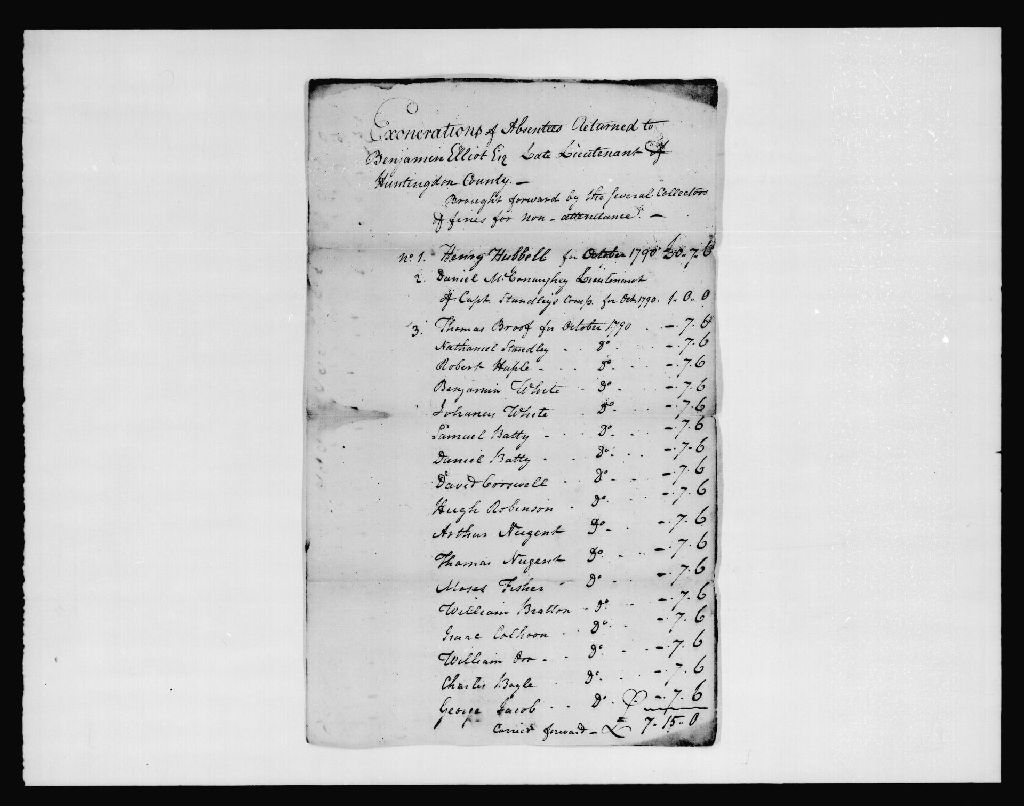 Exonerations of Absentees Returned to
Benjamin Elliot Esq Late Lieutenant of
Huntingdon County. –
Brought forward by the Several Collectors
of fines for non-attendance. –
No 1. Henry Hubbell for October 1790 £0.7.6
2. Daniel McConaughey Lieutenant
of Capt. Standley's Comp. for Oct. 1790. 1.0.0
3. Thomas Broof for October 1790 . . –.7.6
Nathaniel Standley . . do . . . –.7.6
Robert Huple – . . do . . . –.7.6
Benjamin White . . do – . . –.7.6
Johanus White . do – . . . –.7.6
Samuel Batty – . . do – . . –.7.6
Daniel Batty – . . do . . . –.7.6
David Corswell . . do . . . –.7.6
Hugh Robinson . do . . . –.7.6
Arthur Nugent do – . . –.7.6
Thomas Nugent do . . . –.7.6
Moses Fisher . . do . . . –.7.6
William Bratton – do . . . –.7.6
Isaac Colhoon . . do . . . –.7.6
William – . . do . . . –.7.6
Charles Boyle . . do . . . –.7.6
George Jacob . . do . –.7.6
Carried forward – £ 7.15.0